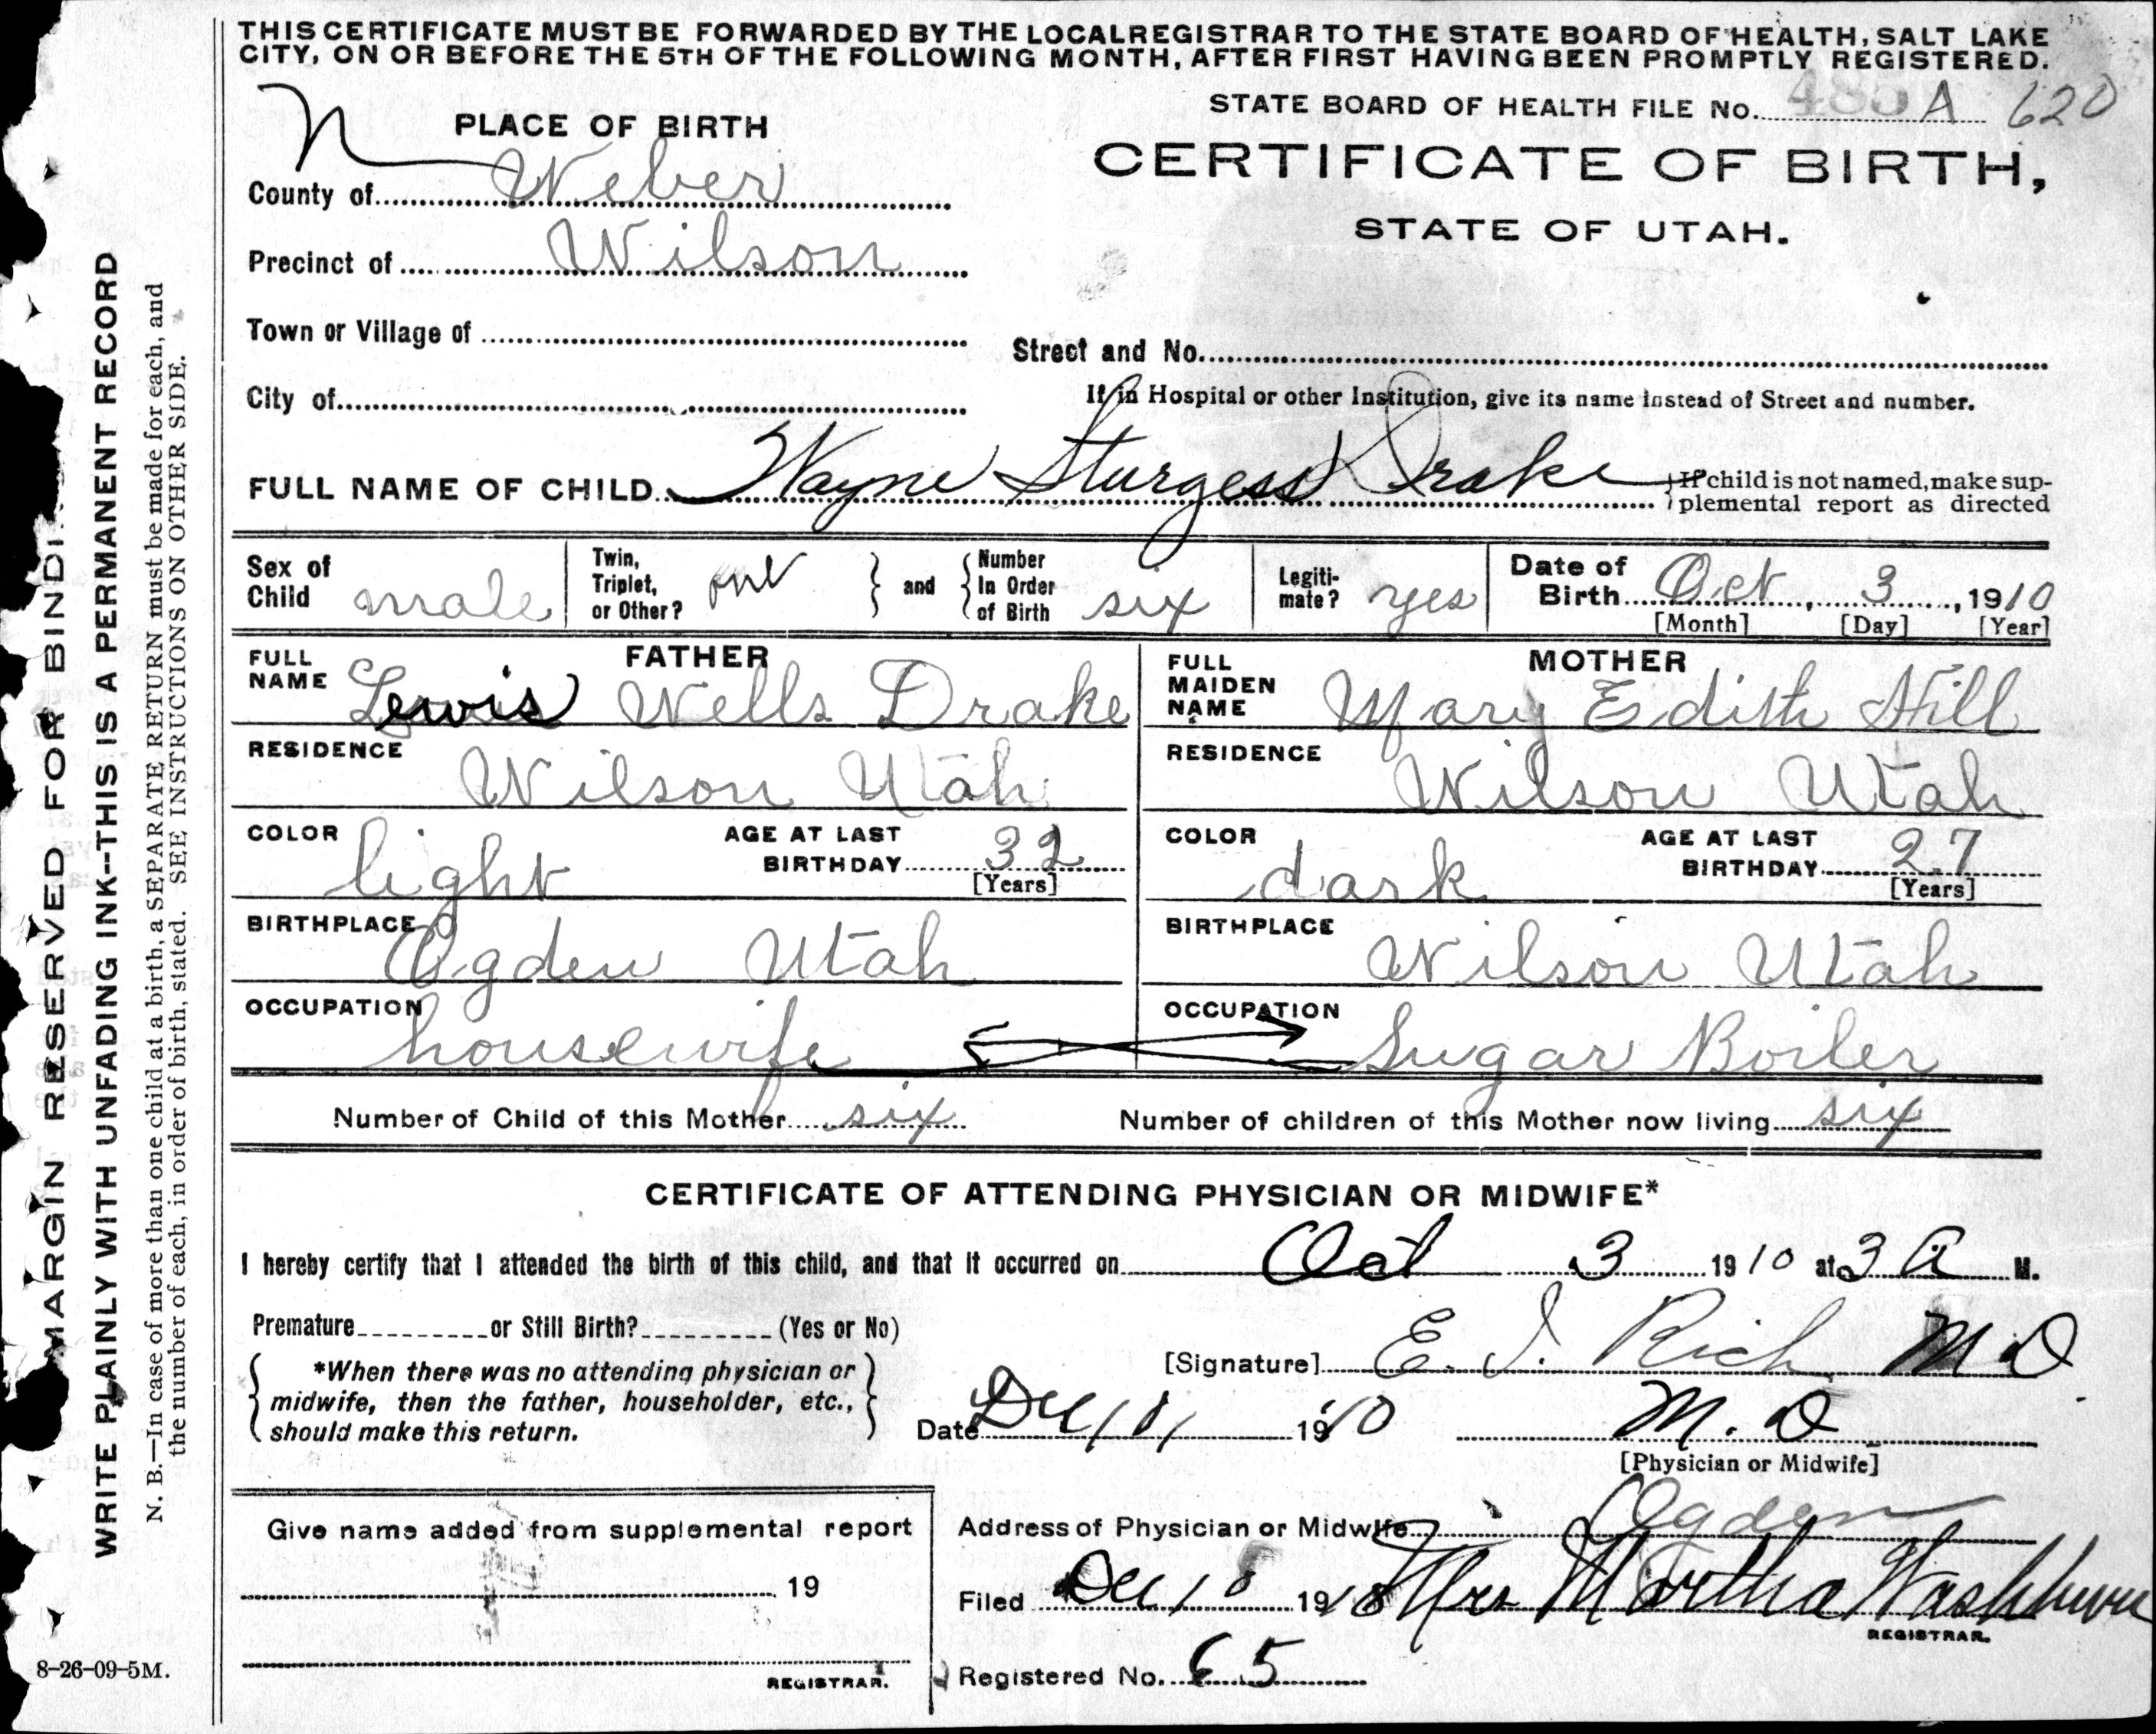 THIS CERTIFICATE MUST BE FORWARDED BY THE LOCAL REGISTRAR TO THE STATE BOARD OF HEALTH, SALT LAKE
CITY, ON OR BEFORE THE 5TH OF THE FOLLOWING MONTH, AFTER FIRST HAVING BEEN PROMPTLY REGISTERED.
STATE BOARD OF HEALTH FILE No. 485 A 620
PLACE OF BIRTH
CERTIFICATE OF BIRTH,
STATE OF UTAH.
County of Weber
Precinct of Wilson
Town or Village of
Street and No.
City of
If in Hospital or other Institution, give its name instead of Street and number.
FULL NAME OF CHILD Wayne Sturgess Drake
If child is not named, make sup-
plemental report as directed
Sex of Child male
Twin, Triplet, or Other? one
and
Number In Order of Birth six
Legiti-mate? yes
Date of Birth Oct, 3, 1910
[Month] [Day] [Year]
FATHER
FULL NAME Lewis Wells Drake
RESIDENCE
Wilson Utah
COLOR light
AGE AT LAST BIRTHDAY 32
[Years]
BIRTHPLACE
Ogden Utah
OCCUPATION
housewife
MOTHER
FULL MAIDEN NAME Mary Edith Hill
RESIDENCE
Wilson Utah
COLOR dark
AGE AT LAST BIRTHDAY 27
[Years]
BIRTHPLACE
Wilson Utah
OCCUPATION
Sugar Boiler
Number of Child of this Mother six
Number of children of this Mother now living six
CERTIFICATE OF ATTENDING PHYSICIAN OR MIDWIFE*
I hereby certify that I attended the birth of this child, and that it occurred on Oct 3 1910 at 3 A M.
Premature or Still Birth? (Yes or No)
*When there was no attending physician or
midwife, then the father, householder, etc.,
should make this return.
[Signature] E. I. Rich M D
Date Dec 1910
M. D
[Physician or Midwife]
Give name added from supplemental report
19
REGISTRAR.
Address of Physician or Midwife Ogden
Filed Dec 1910 Mrs Martha Washburn
REGISTRAR.
Registered No. 65
MARGIN RESERVED FOR BINDING
WRITE PLAINLY WITH UNFADING INK--THIS IS A PERMANENT RECORD
N. B.—In case of more than one child at a birth, a SEPARATE RETURN must be made for each, and
the number of each, in order of birth, stated. SEE INSTRUCTIONS ON OTHER SIDE.
8-26-09-5M.